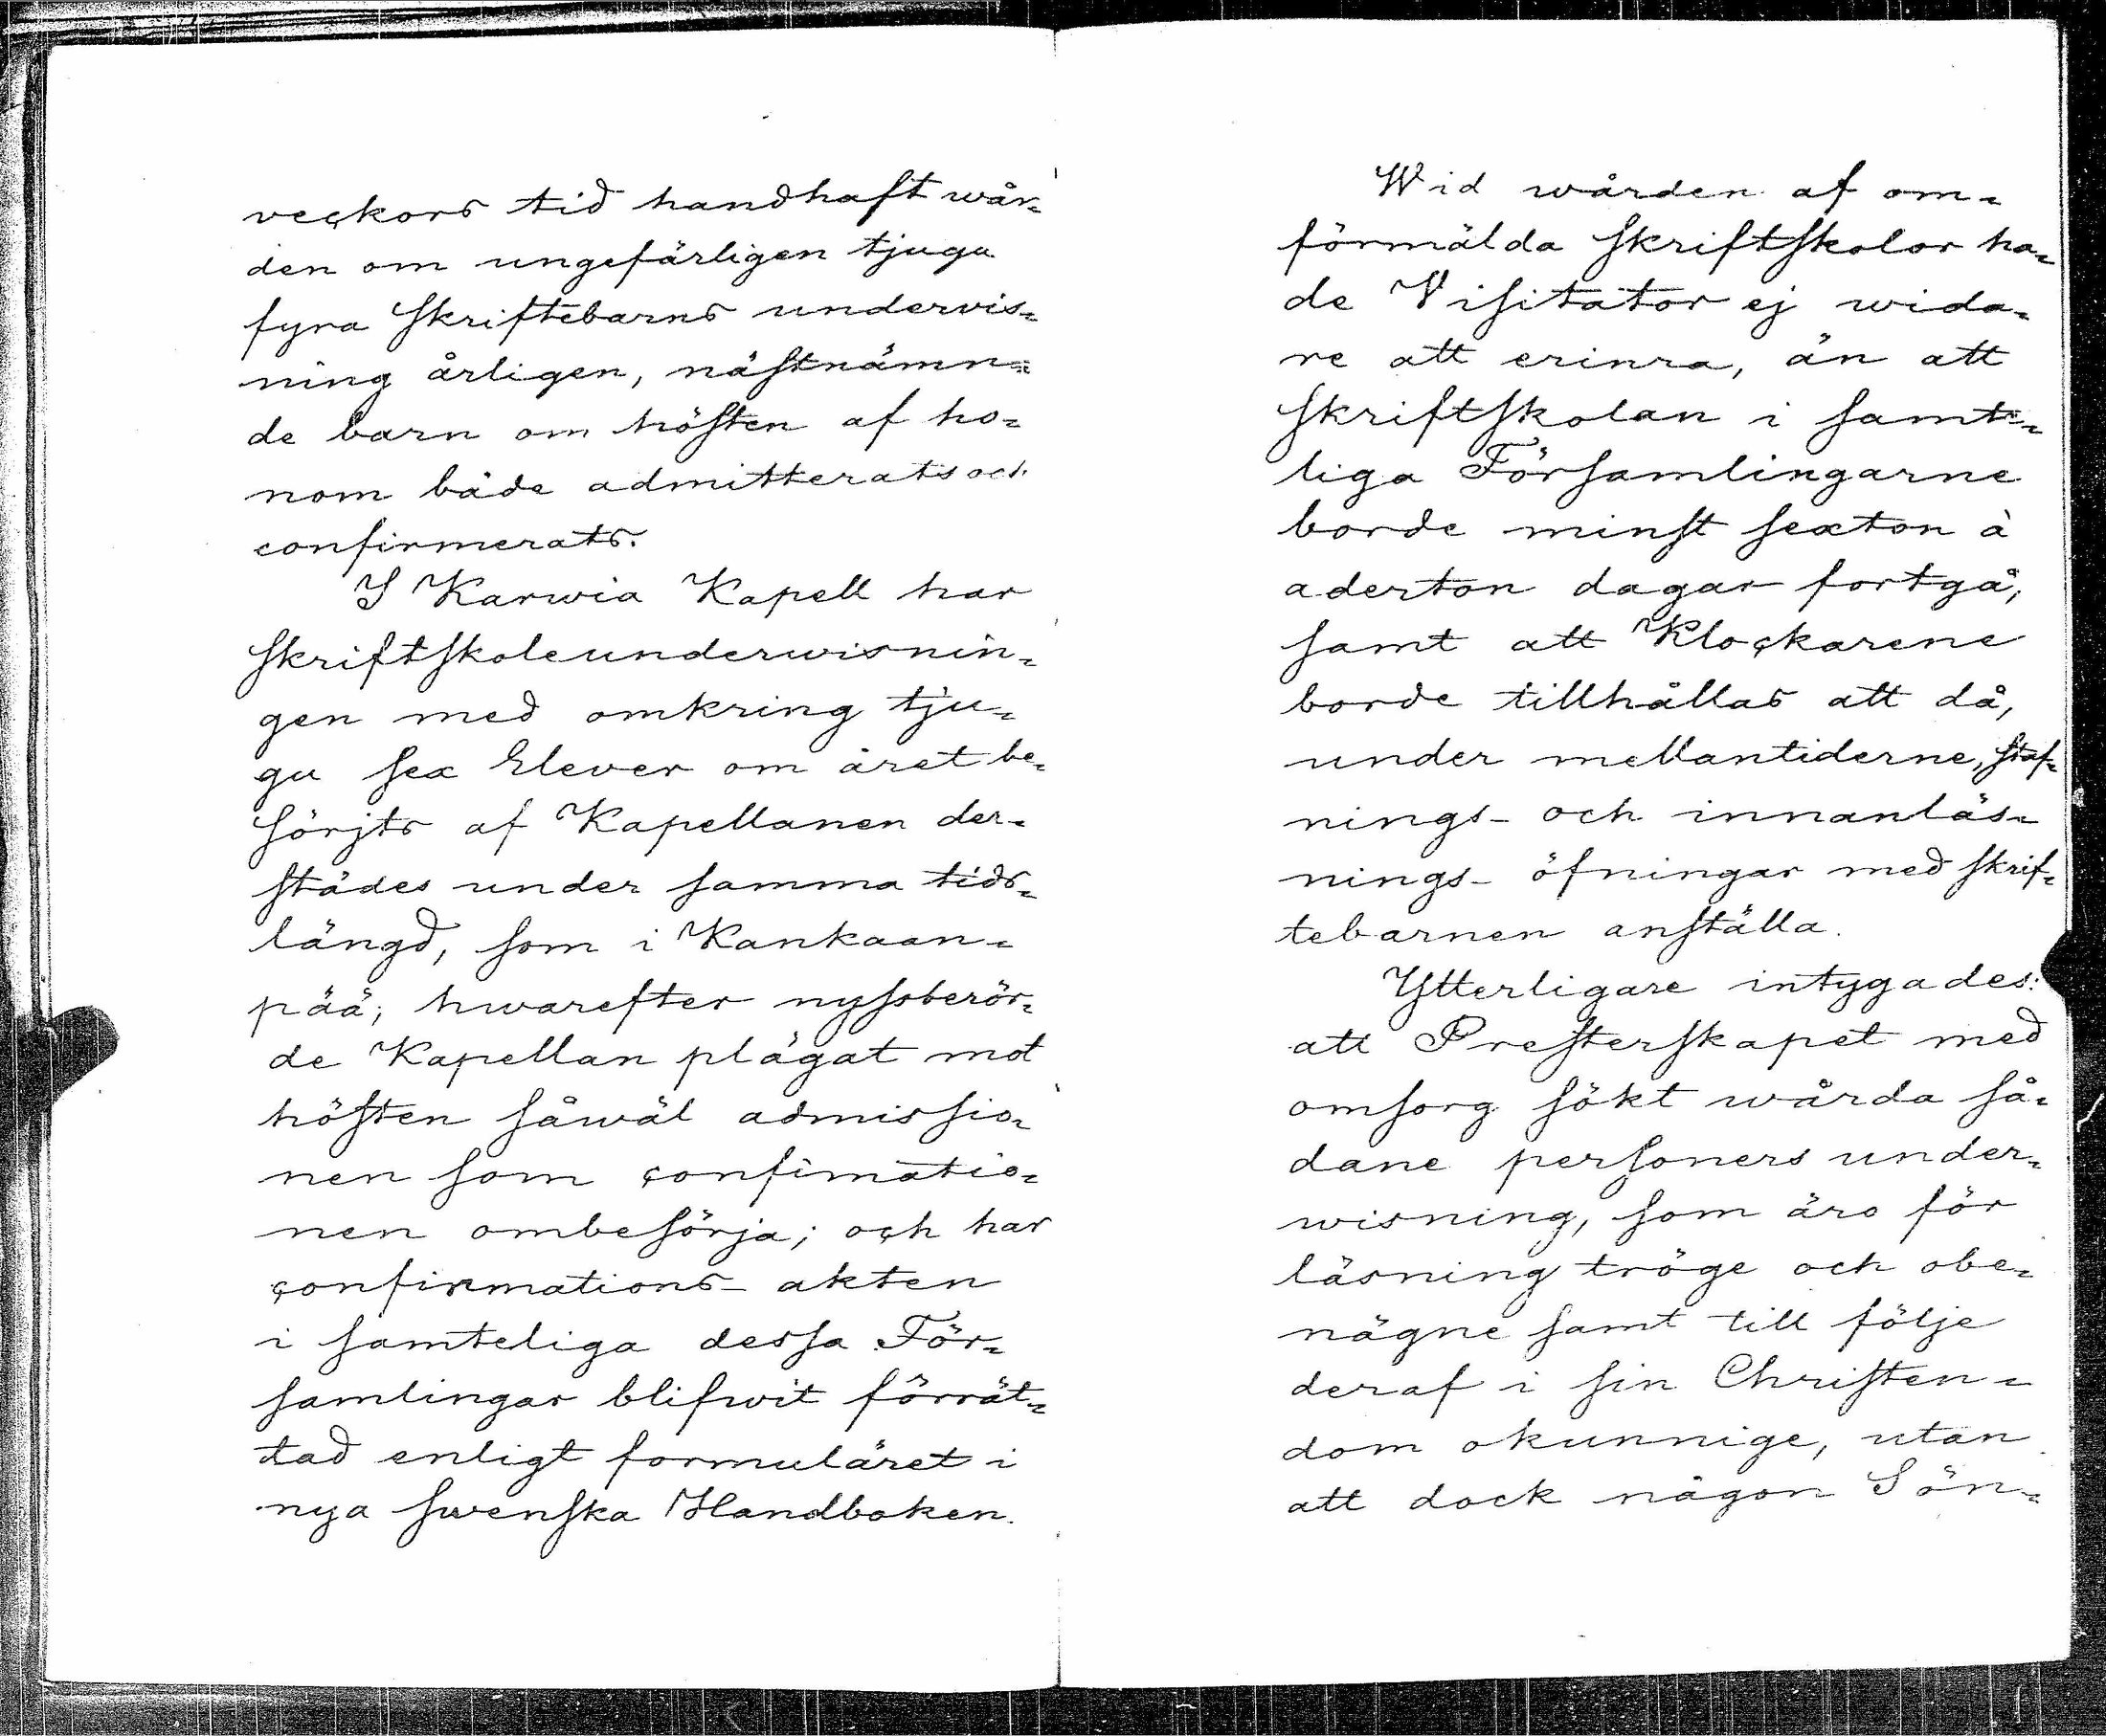 veckors tid handhaft wår=
den om ungefärligen tjugu
fyra Skriftebarns undervis=
ning årligen, nästnämn=
de barn om hösten af ho=
nom både admitterats och
confirmerats.
I Karwia Kapell har
Skriftskoleunderwisnin=
gen med omkring tju=
gu sex Elever om året be=
sörjts af Kapellanen der=
städes under samma tids=
längd, som i Kankaan=
pää; hwarefter nyssberör=
de Kapellan plägat mot
hösten såwäl admissio=
nen som confimatio=
nen ombesörja; och har
confirmations- akten
i samteliga dessa För=
samlingar blifwit förrät=
tad enligt formuläret i
nya Swenska Handboken.
Wid wården af om=
förmälda Skriftskolor ha=
de Visitator ej wida=
re att erinra, än att
Skriftskolan i samt=
liga Församlingarne
borde minst sexton à
aderton dagar fortgå,
samt att Klockarene
borde tillhållas att då,
under mellantiderne, staf=
nings- och innanläs=
nings- öfningar med skrif=
tebarnen anställa.
Ytterligare intygades:
att Presterskapet med
omsorg sökt wårda så=
dane personers under=
wisning, som äro för
läsning tröge och obe=
nägne samt till följe
deraf i sin Christen=
dom okunnige, utan
att dock någon Sön=